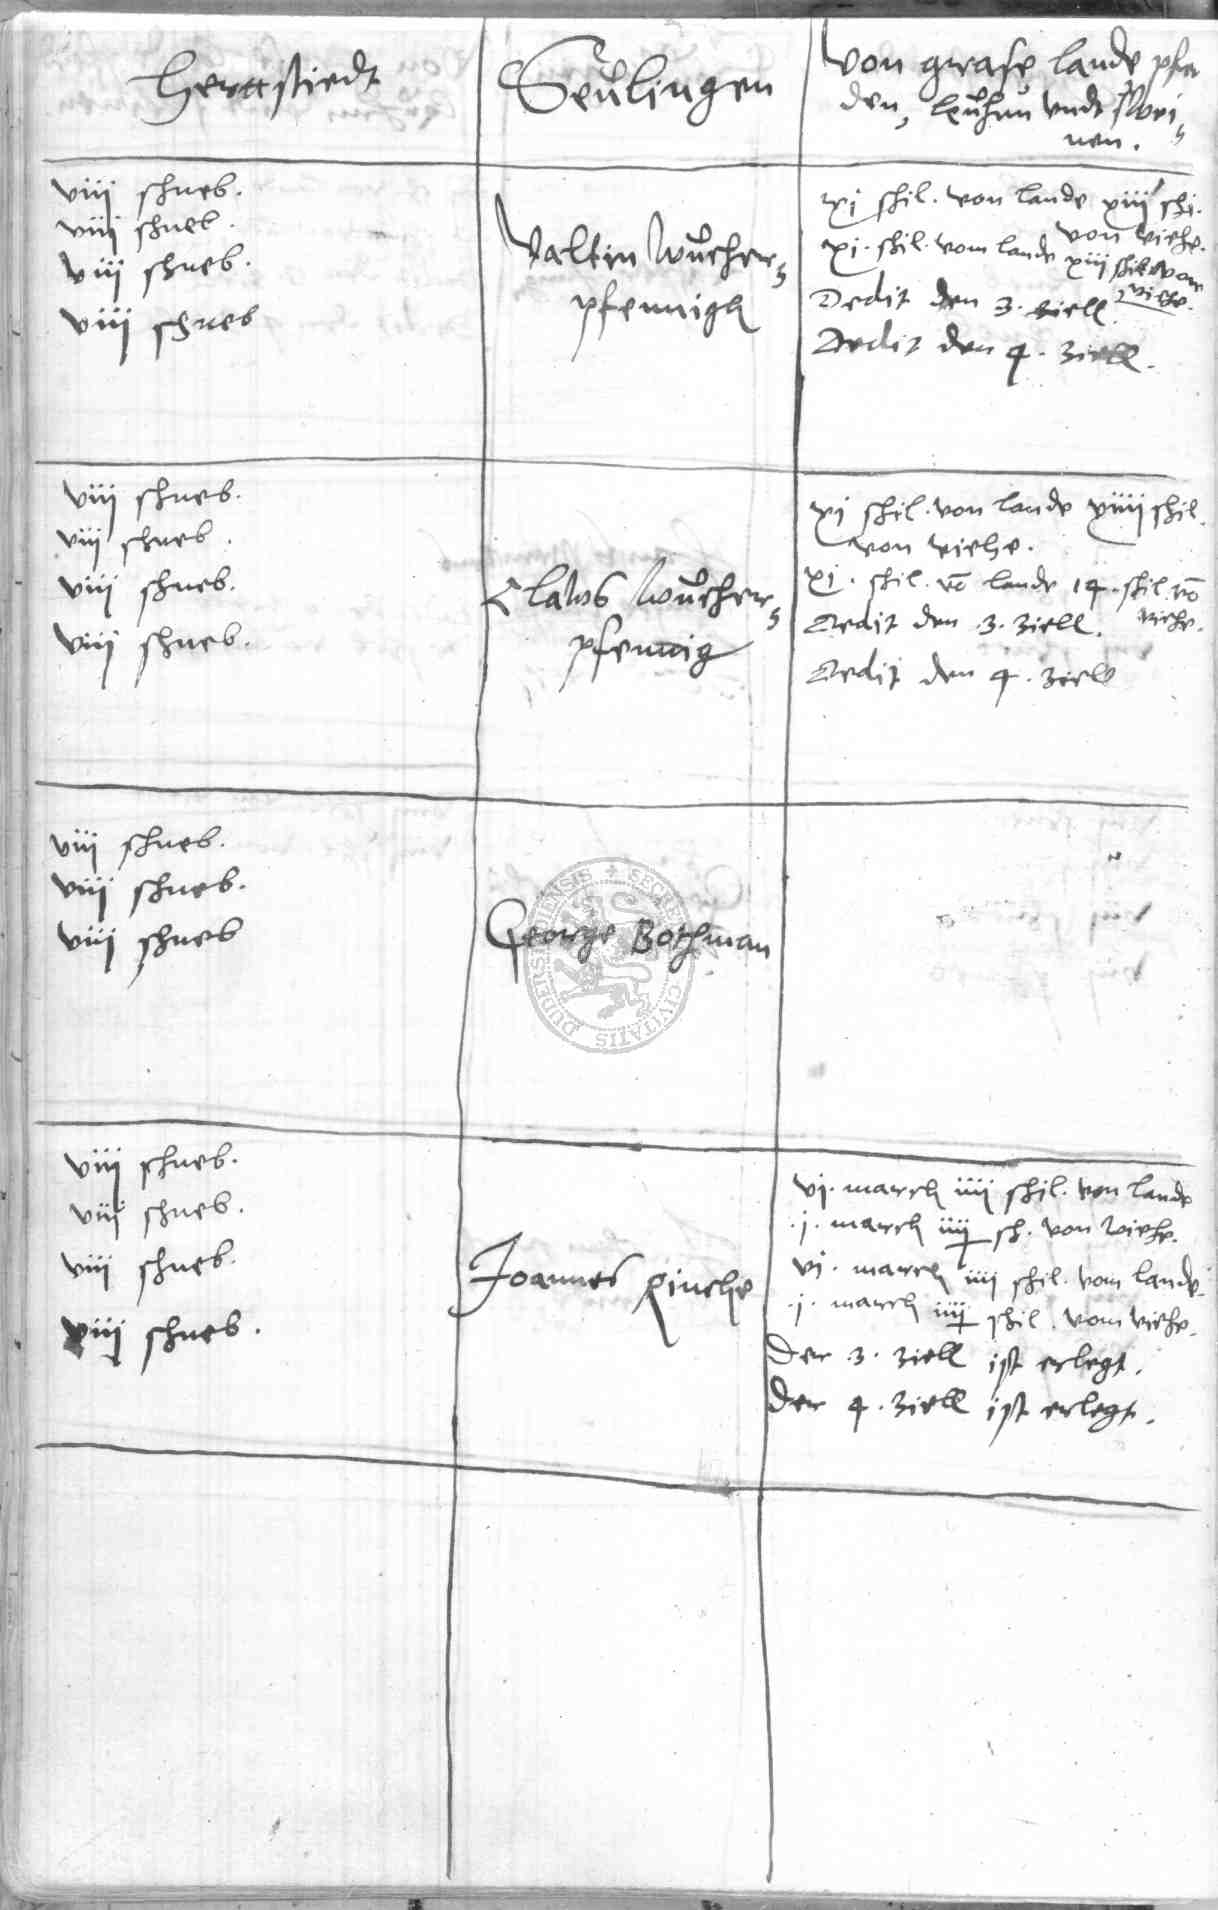 Herttstiedt
Seülingen
von grase lande pfer
den, kühen vndt schwei-
nen.
viii schneb.
viii schneb.
viii schneb.
viii schneb
Valtin Wücher-
pfennigk
xi schil. von lande xiiii schi.
von viehe.
xi. schil. vom lande xiii schil. vom
viehe.
Dedit den 3. ziell.
Dedit den 4. ziell.
viii schneb.
viii schneb.
viii schneb.
viii schneb.
Claws Wücher-
pfennig
xi schil. von lande xiiii schil.
von viehe.
xi. schil. vō lande 14. schil. vō
viehe.
Dedit den .3. ziell.
Dedit den 4. ziell
viii schneb.
viii schneb.
viii schneb
George Bothman
viii schneb.
viii schneb.
viii schneb.
viii schneb.
Joannes Rinche
vi. march iiii schil. von lande
.j. march iiii sch. von viehe.
vi. march iiii schil. vom lande.
.j. march iiii schil. vom viehe.
Der .3. ziell ist erlegt.
Der 4. ziell ist erlegt.
SECRET CIVITATIS DUDERSTADIENSIS